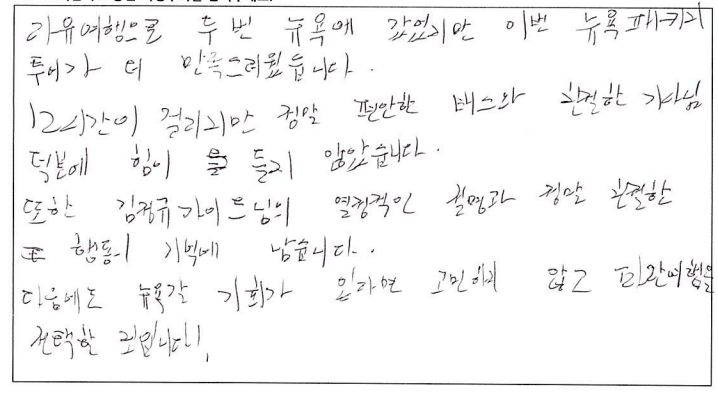 자유여행으로 두 번 뉴욕에 갔었지만 이번 뉴욕 패키지
투어가 더 만족스러웠습니다.
12시간이 걸리지만 정말 편안한 버스와 친절한 기사님
덕분에 힘이 들지 않았습니다.
또한 김정규가이드님의 열정적인 설명과 정말 친절한
행동이 기억에 남습니다.
다음에도 뉴욕갈 기회가 온다면 고민하지 않고 여행을
선택할 것입니다!